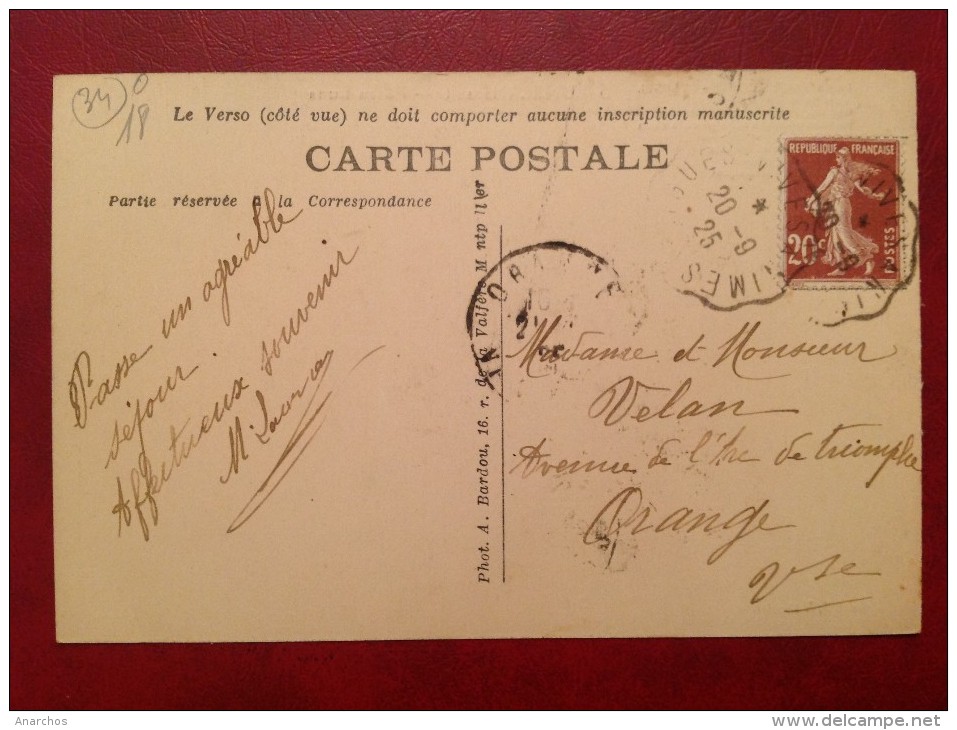 34
0
18
Le Verso (côté vue) ne doit comporter aucune inscription manuscrite
CARTE POSTALE
Partie réservée à la Correspondance
REPUBLIQUE FRANÇAISE
20c
POSTES
20-9
25
NIMES
ORANGE
25
Passe un agréable
séjour
Affectueux souvenir
Phot. A. Bardou, 16. r. de la Valfère Montpellier
Madame et Monsieur
Velan
Avenue de l'Arc de triomphe
Orange
Vse
Anarchos
www.delcampe.net